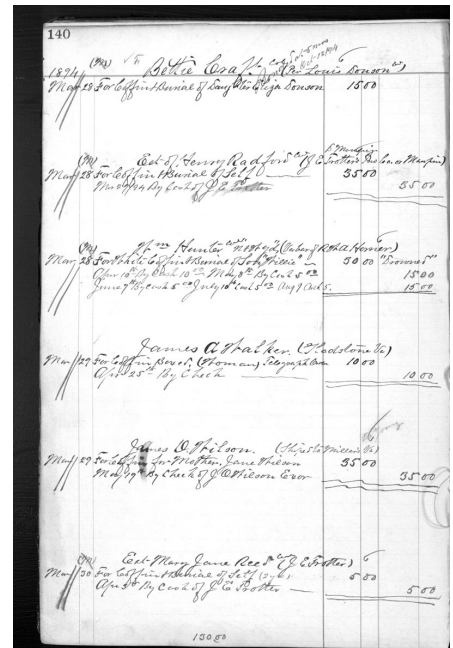 140
1894 Bettie Craft (Per Louis Donson)
Mar 28 For Coffin & Burial of Daughter Eliza Donson 15 00
Est. of Henry Radford (J E Trotter
Mar 28 For Coffin & Burial of Self — 35 00
By Cash of J E Trotter 35 00
Wm Hunter
Mar 28 For White Coffin & Burial of Son "Willie" — 30 00 "Drowned"
Apr 10th By Cash 10 00 May 9th By Cash 5 00 15 00
June 9th By Cash 5 00 July 10th Cash 5 00 Aug 9 Cash 5. 15 00
James A Walker. (Gladstone Va)
Mar 29 For Coffin Boxed, (Woman) Telegraph 10 00
Apr 25th By Check — 10 00
James O. Wilson. (Ship to Va)
Mar 29 For Coffin for Mother, Jane Wilson 35 00
May 19th By Check of J O Wilson Exor 35 00
Est. Mary Jane Reed (J E Trotter)
Mar 30 For Coffin & Burial of Self 5 00
Apr By Cash of J E Trotter — 5 00
130 00